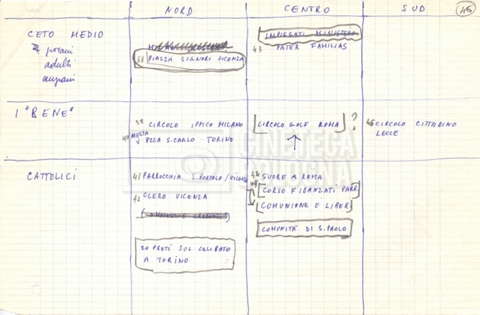 NORD CENTRO SUD 46
CETO MEDIO
giovani
adulti
anziani
38 PIAZZA SIGNORI VICENZA
IMPIEGATI MINISTERO
43 PATER FAMILIAS
I "BENE"
39 CIRCOLO IPPICO MILANO
40 MESSA
PZZA S. CARLO TORINO
CIRCOLO GOLF ROMA ?
45 CIRCOLO CITTADINO
LECCE
CATTOLICI
41 PARROCCHIA
42 CLERO VICENZA
20 PRETI SUL CELIBATO
A TORINO
44 SUORE A ROMA
CORSO FIDANZATI PARR
COMUNIONE E LIBER
COMUNITÀ DI S. PAOLO
CINETECA
BOLOGNA